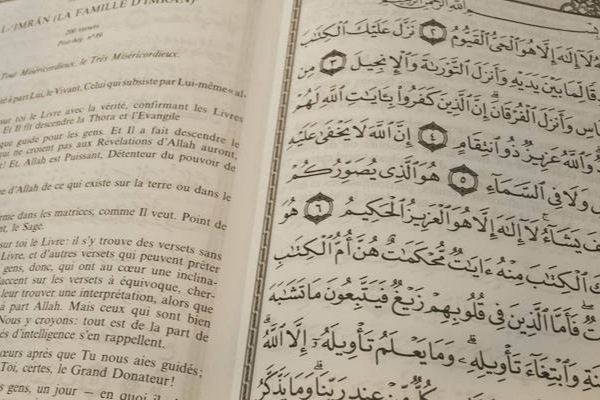 L-'IMRÂN (LA FAMILLE D'IMRAN)
200 versets
Post-hég. n° 89
Tout Miséricordieux, le Très Miséricordieux.
à part Lui, le Vivant, Celui qui subsiste par Lui-même « al-
sur toi le Livre avec la vérité, confirmant les Livres
Et Il fit descendre la Thora et l'Evangile
que guide pour les gens. Et Il a fait descendre le
qui ne croient pas aux Révélations d'Allah auront,
! Et, Allah est Puissant, Détenteur du pouvoir de
d'Allah de ce qui existe sur la terre ou dans le
dans les matrices, comme Il veut. Point de
le Sage.
sur toi le Livre : il s'y trouve des versets sans
Livre, et d'autres versets qui peuvent prêter
gens, donc, qui ont au cœur une inclina-
accent sur les versets à équivoque, cher-
leur trouver une interprétation, alors que
à part Allah. Mais ceux qui sont bien
Nous y croyons : tout est de la part de
d'intelligence s'en rappellent.
cœurs après que Tu nous aies guidés ;
Toi, certes, le Grand Donateur !
gens, un jour — en quoi il
ٱللَّهِ ٱلرَّحْمَٰنِ
لَآ إِلَٰهَ إِلَّا هُوَ ٱلْحَىُّ ٱلْقَيُّومُ ٢ نَزَّلَ عَلَيْكَ ٱلْكِتَٰبَ
لِّمَا بَيْنَ يَدَيْهِ وَأَنزَلَ ٱلتَّوْرَىٰةَ وَٱلْإِنجِيلَ ٣ مِن
وَأَنزَلَ ٱلْفُرْقَانَ إِنَّ ٱلَّذِينَ كَفَرُوا۟ بِـَٔايَٰتِ ٱللَّهِ لَهُمْ
وَٱللَّهُ عَزِيزٌ ذُو ٱنتِقَامٍ ٤ إِنَّ ٱللَّهَ لَا يَخْفَىٰ عَلَيْهِ
وَلَا فِى ٱلسَّمَآءِ ٥ هُوَ ٱلَّذِى يُصَوِّرُكُمْ
يَشَآءُ لَآ إِلَٰهَ إِلَّا هُوَ ٱلْعَزِيزُ ٱلْحَكِيمُ ٦ هُوَ
ٱلْكِتَٰبَ مِنْهُ ءَايَٰتٌ مُّحْكَمَٰتٌ هُنَّ أُمُّ ٱلْكِتَٰبِ
فَأَمَّا ٱلَّذِينَ فِى قُلُوبِهِمْ زَيْغٌ فَيَتَّبِعُونَ مَا تَشَٰبَهَ
وَٱبْتِغَآءَ تَأْوِيلِهِۦ وَمَا يَعْلَمُ تَأْوِيلَهُۥٓ إِلَّا ٱللَّهُ
كُلٌّ مِّنْ عِندِ رَبِّنَا وَمَا يَذَّكَّرُ